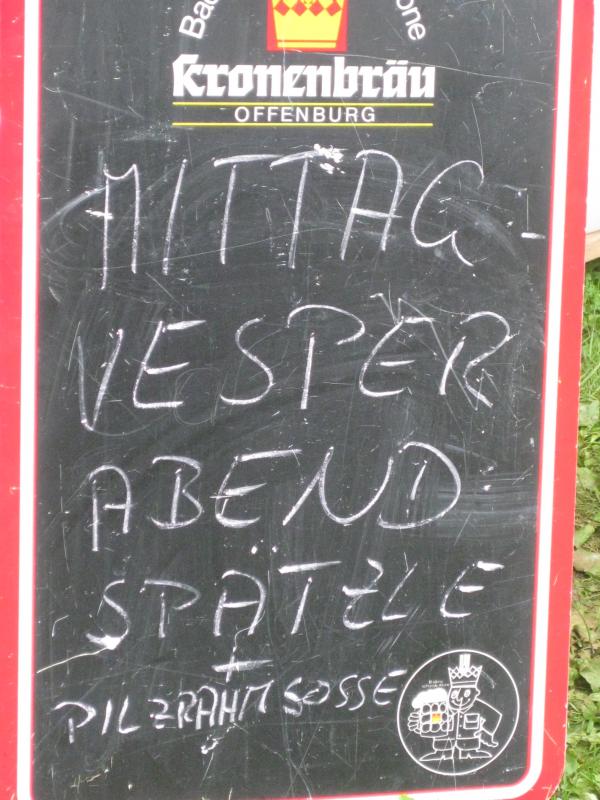 Kronenbräu
OFFENBURG
MITTAG -
VESPER
ABEND
SPÄTZLE
+
PILZRAHMSOSSE